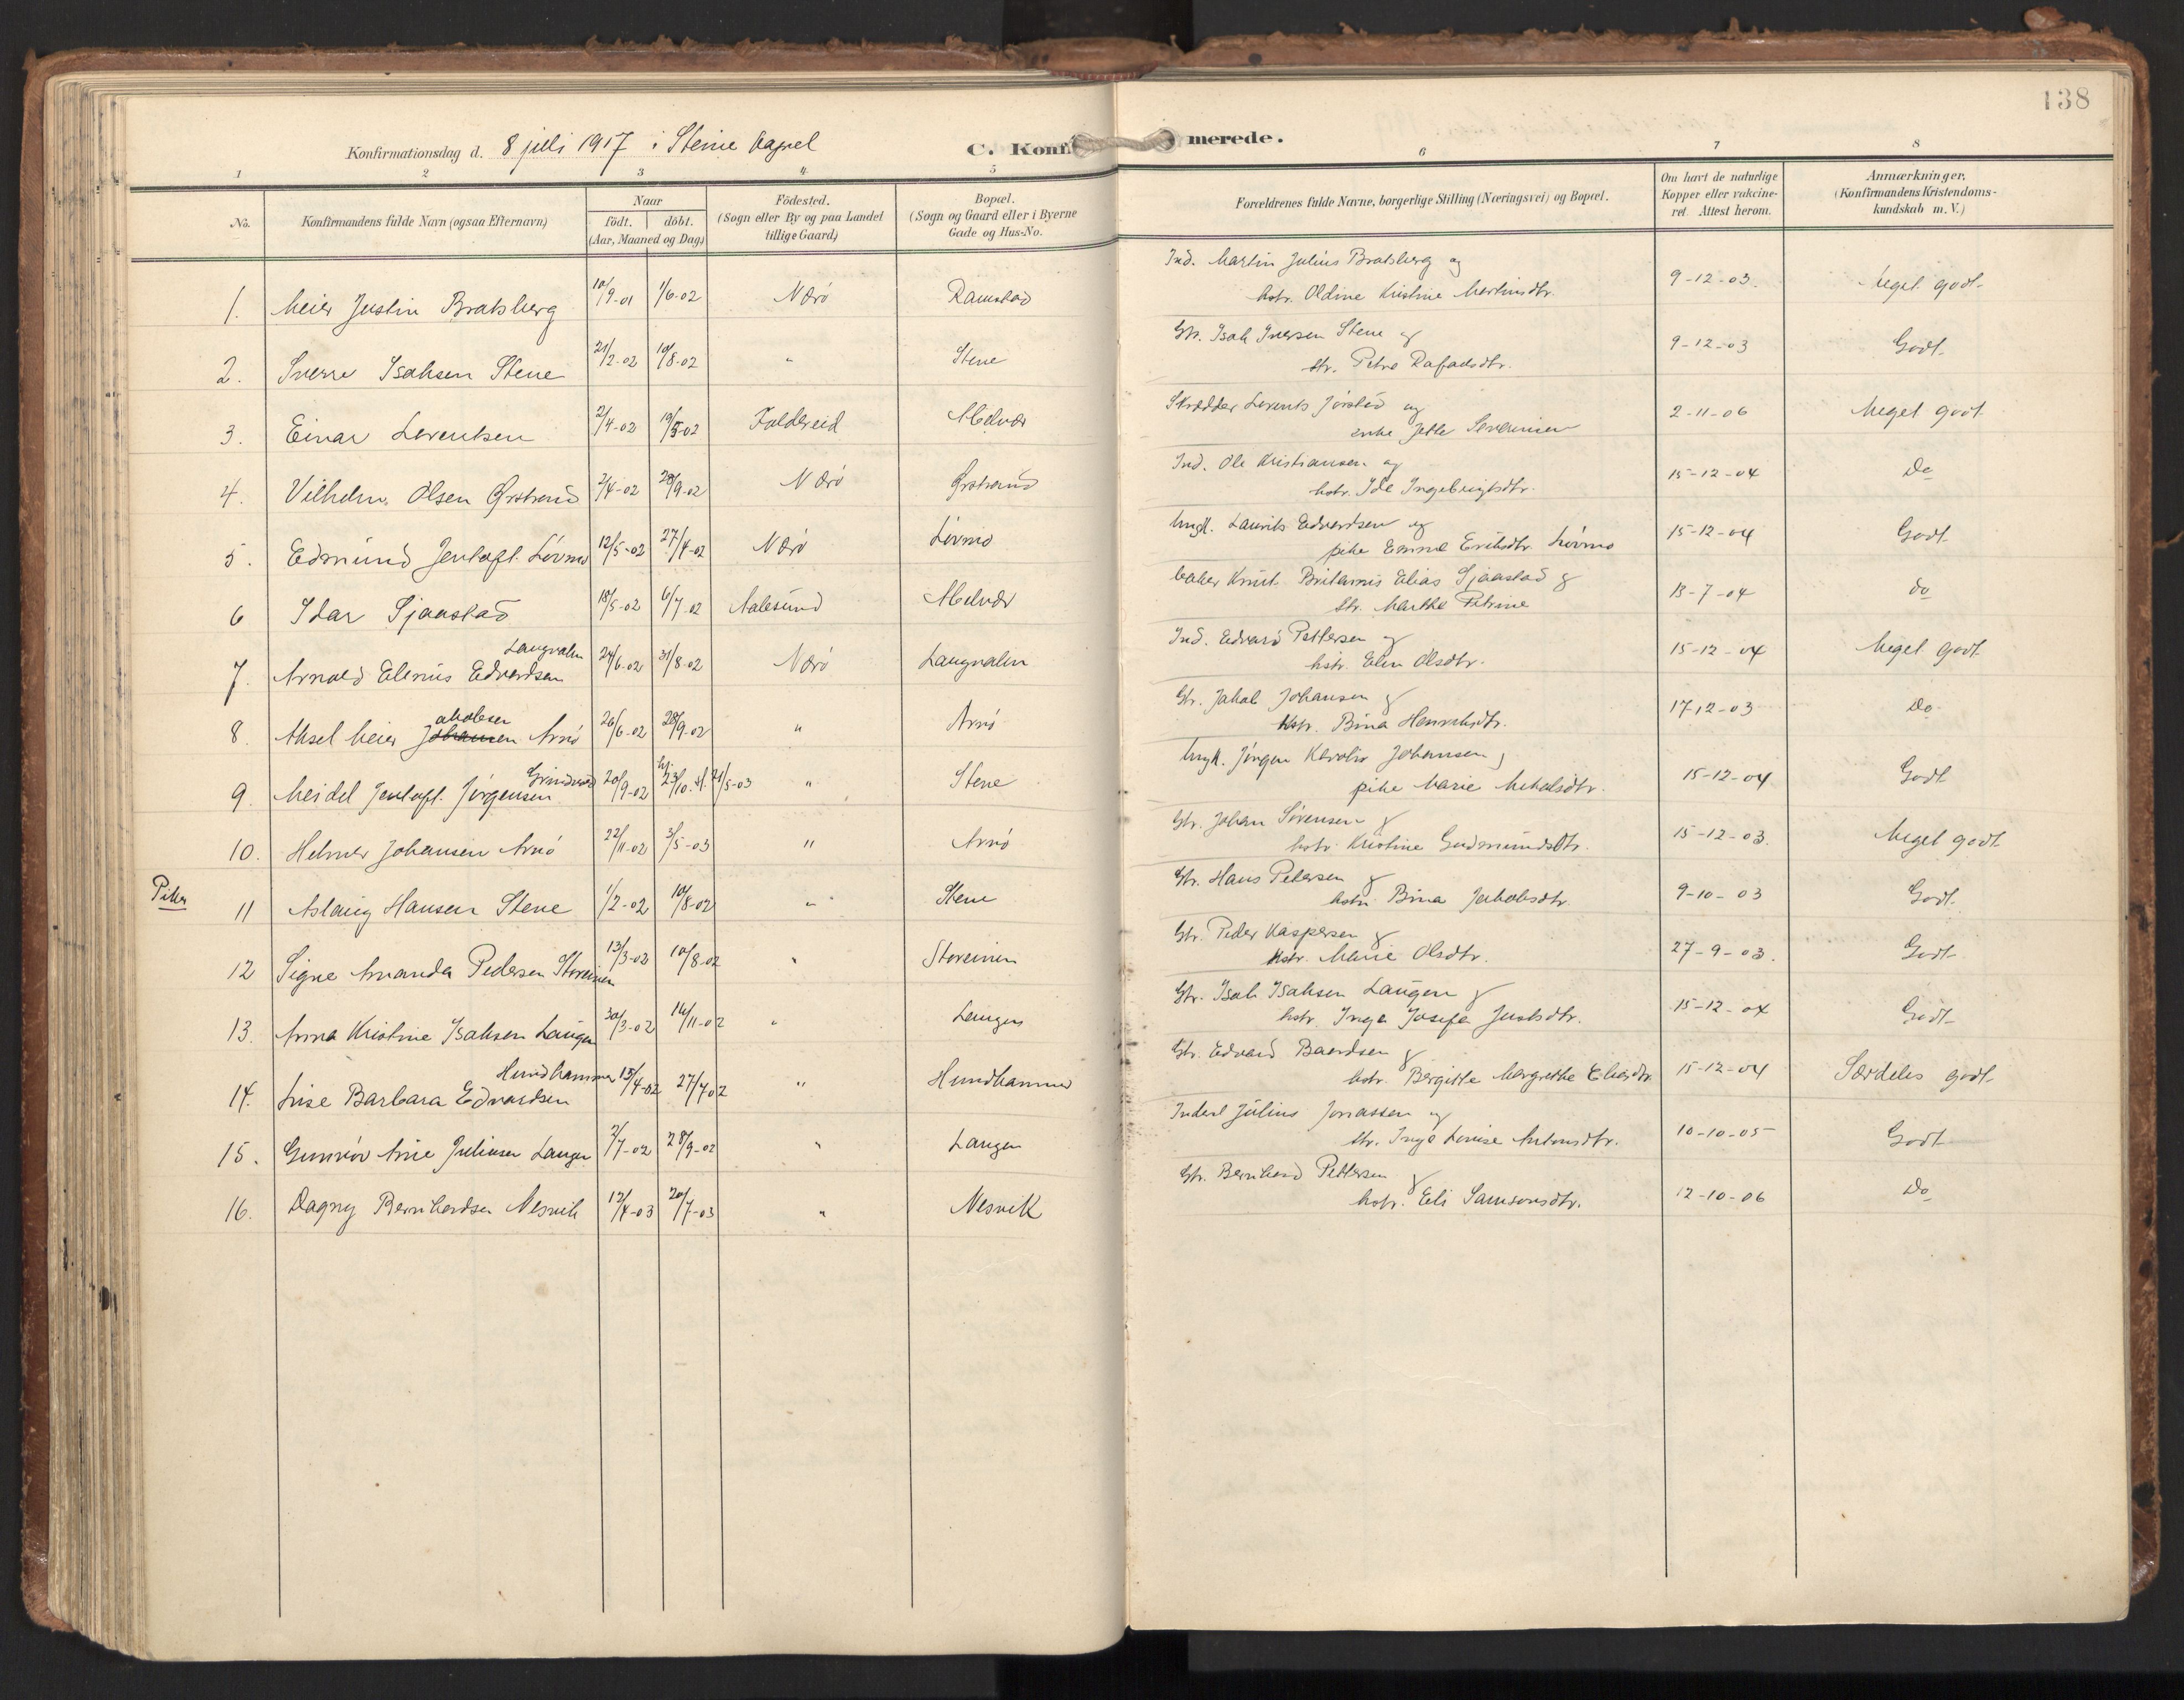 138
Konfirmationsdag d. 8 juli 1917 i Steine kapel
C. Konfirmerede.
1 2 3 4 5 6 7 8
No. Konfirmandens fulde Navn (ogsaa Efternavn) Naar födt. döbt. (Aar, Maaned og Dag) Födested. (Sogn eller By og paa Landet tillige Gaard) Bopæl. (Sogn og Gaard eller i Byerne Gade og Hus-No. Forældrenes fulde Navne, borgerlige Stilling (Næringsvei) og Bopæl. Om havt de naturlige Kopper eller vakcineret. Attest herom. Anmærkninger, (Konfirmandens Kristendomskundskab m. V.)
Ind. Martin Julius Bratsberg og
1. Meier Justin Bratsberg 10/9-01 1/6-02 Nærö Ramstad hstr. Oldine Kristine Martinsdtr. 9-12-03. Meget godt
Gbr. Isak Iversen Stene og
2. Sverre Isaksen Stene 21/2-02 10/8-02 " Stene str. Petra Rafaelsdtr. 9-12-03 Godt
Skrædder Lorents Jörstad og
3. Einar Lorentsen 2/4-02 19/5-02 Foldereid Abelvær enke Jette Severinsen 2-11-06 Meget godt
Ind. Ole Kristiansen og
4. Vilhelm Olsen Ørstrand 2/4-02 28/9-02 Nærö Ørstrand hstr. Ida Ingebrigtsdtr. 15-12-04 Do
Ungk. Laurits Edvardsen og
5. Edmund Jentoft Lövmo 12/5-02 27/4-02 Nærö Lövmo pike Emma Eriksdtr. Lövmo 15-12-04 Godt
Baker Knut Britanus Elias Sjaastad &
6 Idar Sjaastad 18/5-02 6/7-02 Aalesund Abelvær str. Marthe Petrine 13-7-04 do
Ind. Edvard Pettersen og
Langvalen
7. Arnold Elenius Edvardsen 24/6-02 31/8-02 Nærö Langvalen hstr. Elen Olsdtr. 15-12-04 Meget godt
Gbr. Jakob Johansen &
akobsen
8. Aksel Meier Johansen Arnö 26/6-02 28/9-02 " Arnö hstr. Bina Henriksdtr. 17-12-03 Do
Ungk. Jörgen Karolius Johansen,
9. Meidel Jentoft Jörgensen 20/9-02 hj. 23/10. st. 21/5-03 " Stene pike Marie Mikalsdtr. 15-12-04 Godt
Gbr. Johan Sörensen &
10. Helmer Johansen Arnö 22/11-02 3/5-03 " Arnö hstr. Kristine Gudmundsdtr. 15-12-03. Meget godt
Piker
Gbr. Hans Petersen &
11 Aslaug Hansen Stene 1/2-02 10/8-02 " Stene hstr. Bina Jakobsdtr. 9-10-03 Godt
Gbr. Peder Kaspersen &
12 Signe Amanda Pedersen Storeinen 13/3-02 10/8-02 " Storeinen hstr. Marie Olsdtr. 27-9-03. Godt
Gbr. Isak Isaksen Laugen &
13. Anna Kristine Isaksen Laugen 30/3-02 16/11-02 " Laugen hstr. Inga Josefa Justsdtr. 15-12-04 Godt
Gbr. Edvard Baardsen &
Hundhammer
14. Lise Barbara Edvardsen 15/4-02 27/7 02 " Hundhammer hstr. Bergitte Margrethe Eliasdtr. 15-12-04 Særdeles godt
Inderst Julius Jonassen og
15. Gunvor Anie Juliusen Laugen 2/7-02 28/9-02 " Laugen str. Inga Lovise Antonsdtr. 10-10-05 Godt
Gbr. Bernhard Pettersen &
16. Dagny Bernhardsen Nesvik 12/4-03 20/7-03 " Nesvik hstr. Eli Samsonsdtr. 12-10-06 Do